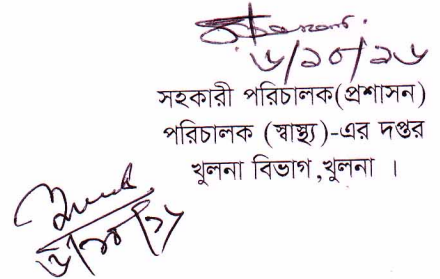 ৬/১০/১৬
সহকারী পরিচালক(প্রশাসন)
পরিচালক (স্বাস্থ্য)-এর দপ্তর
খুলনা বিভাগ,খুলনা ।